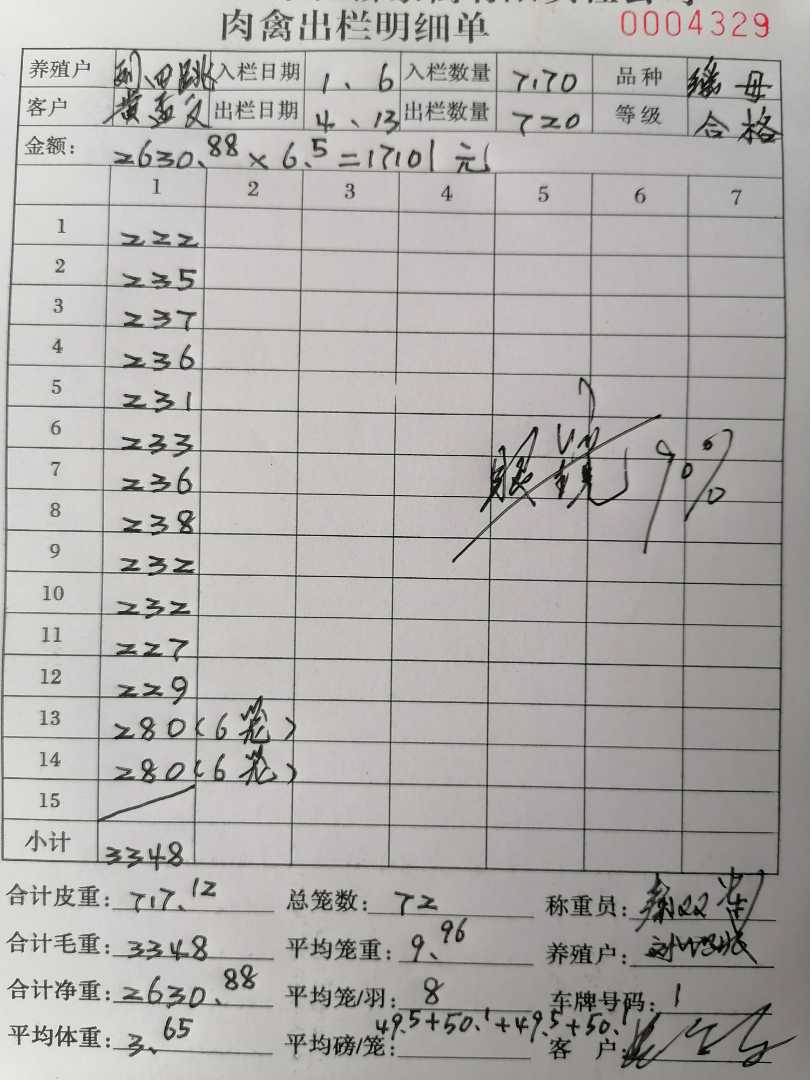 肉禽出栏明细单 0004329
养殖户 入栏日期 1、6 入栏数量 7170 品种 母
客户 黄孟文 出栏日期 4、13 出栏数量 720 等级 合格
金额: 2630.88×6.5=17101元
1 2 3 4 5 6 7
1 222
2 235
3 237
4 236
5 231
6 233
7 236
8 238
9 232
10 232
11 227
12 229
13 280(6笼)
14 280(6笼)
15
小计 3348
90%
合计皮重: 717.12 总笼数: 72 称重员:
合计毛重: 3348 平均笼重: 9.96 养殖户:
合计净重: 2630.88 平均笼/羽: 8 车牌号码: 1
平均体重: 3.65 平均磅/笼: 49.5+50.1+49.5+50.1 客户: